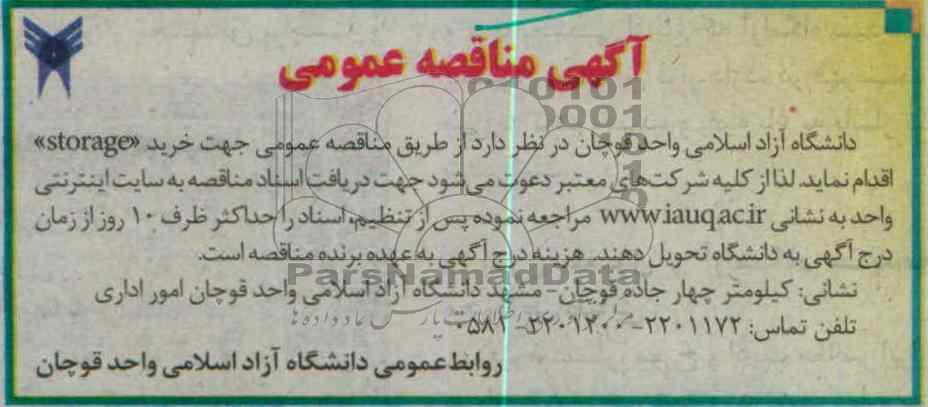 آگهی مناقصه عمومی
دانشگاه آزاد اسلامی واحد قوچان در نظر دارد از طریق مناقصه عمومی جهت خرید «storage»
اقدام نماید. لذا از کلیه شرکت‌های معتبر دعوت می‌شود جهت دریافت اسناد مناقصه به سایت اینترنتی
واحد به نشانی www.iauq.ac.ir مراجعه نموده پس از تنظیم، اسناد را حداکثر ظرف ۱۰ روز از زمان
درج آگهی به دانشگاه تحویل دهند. هزینه درج آگهی به عهده برنده مناقصه است.
ParsNamadData
نشانی: کیلومتر چهار جاده قوچان- مشهد دانشگاه آزاد اسلامی واحد قوچان امور اداری
تلفن تماس: ۲۲۰۱۱۷۲- ۲۲۰۱۲۰۰- ۰۵۸۱
روابط عمومی دانشگاه آزاد اسلامی واحد قوچان